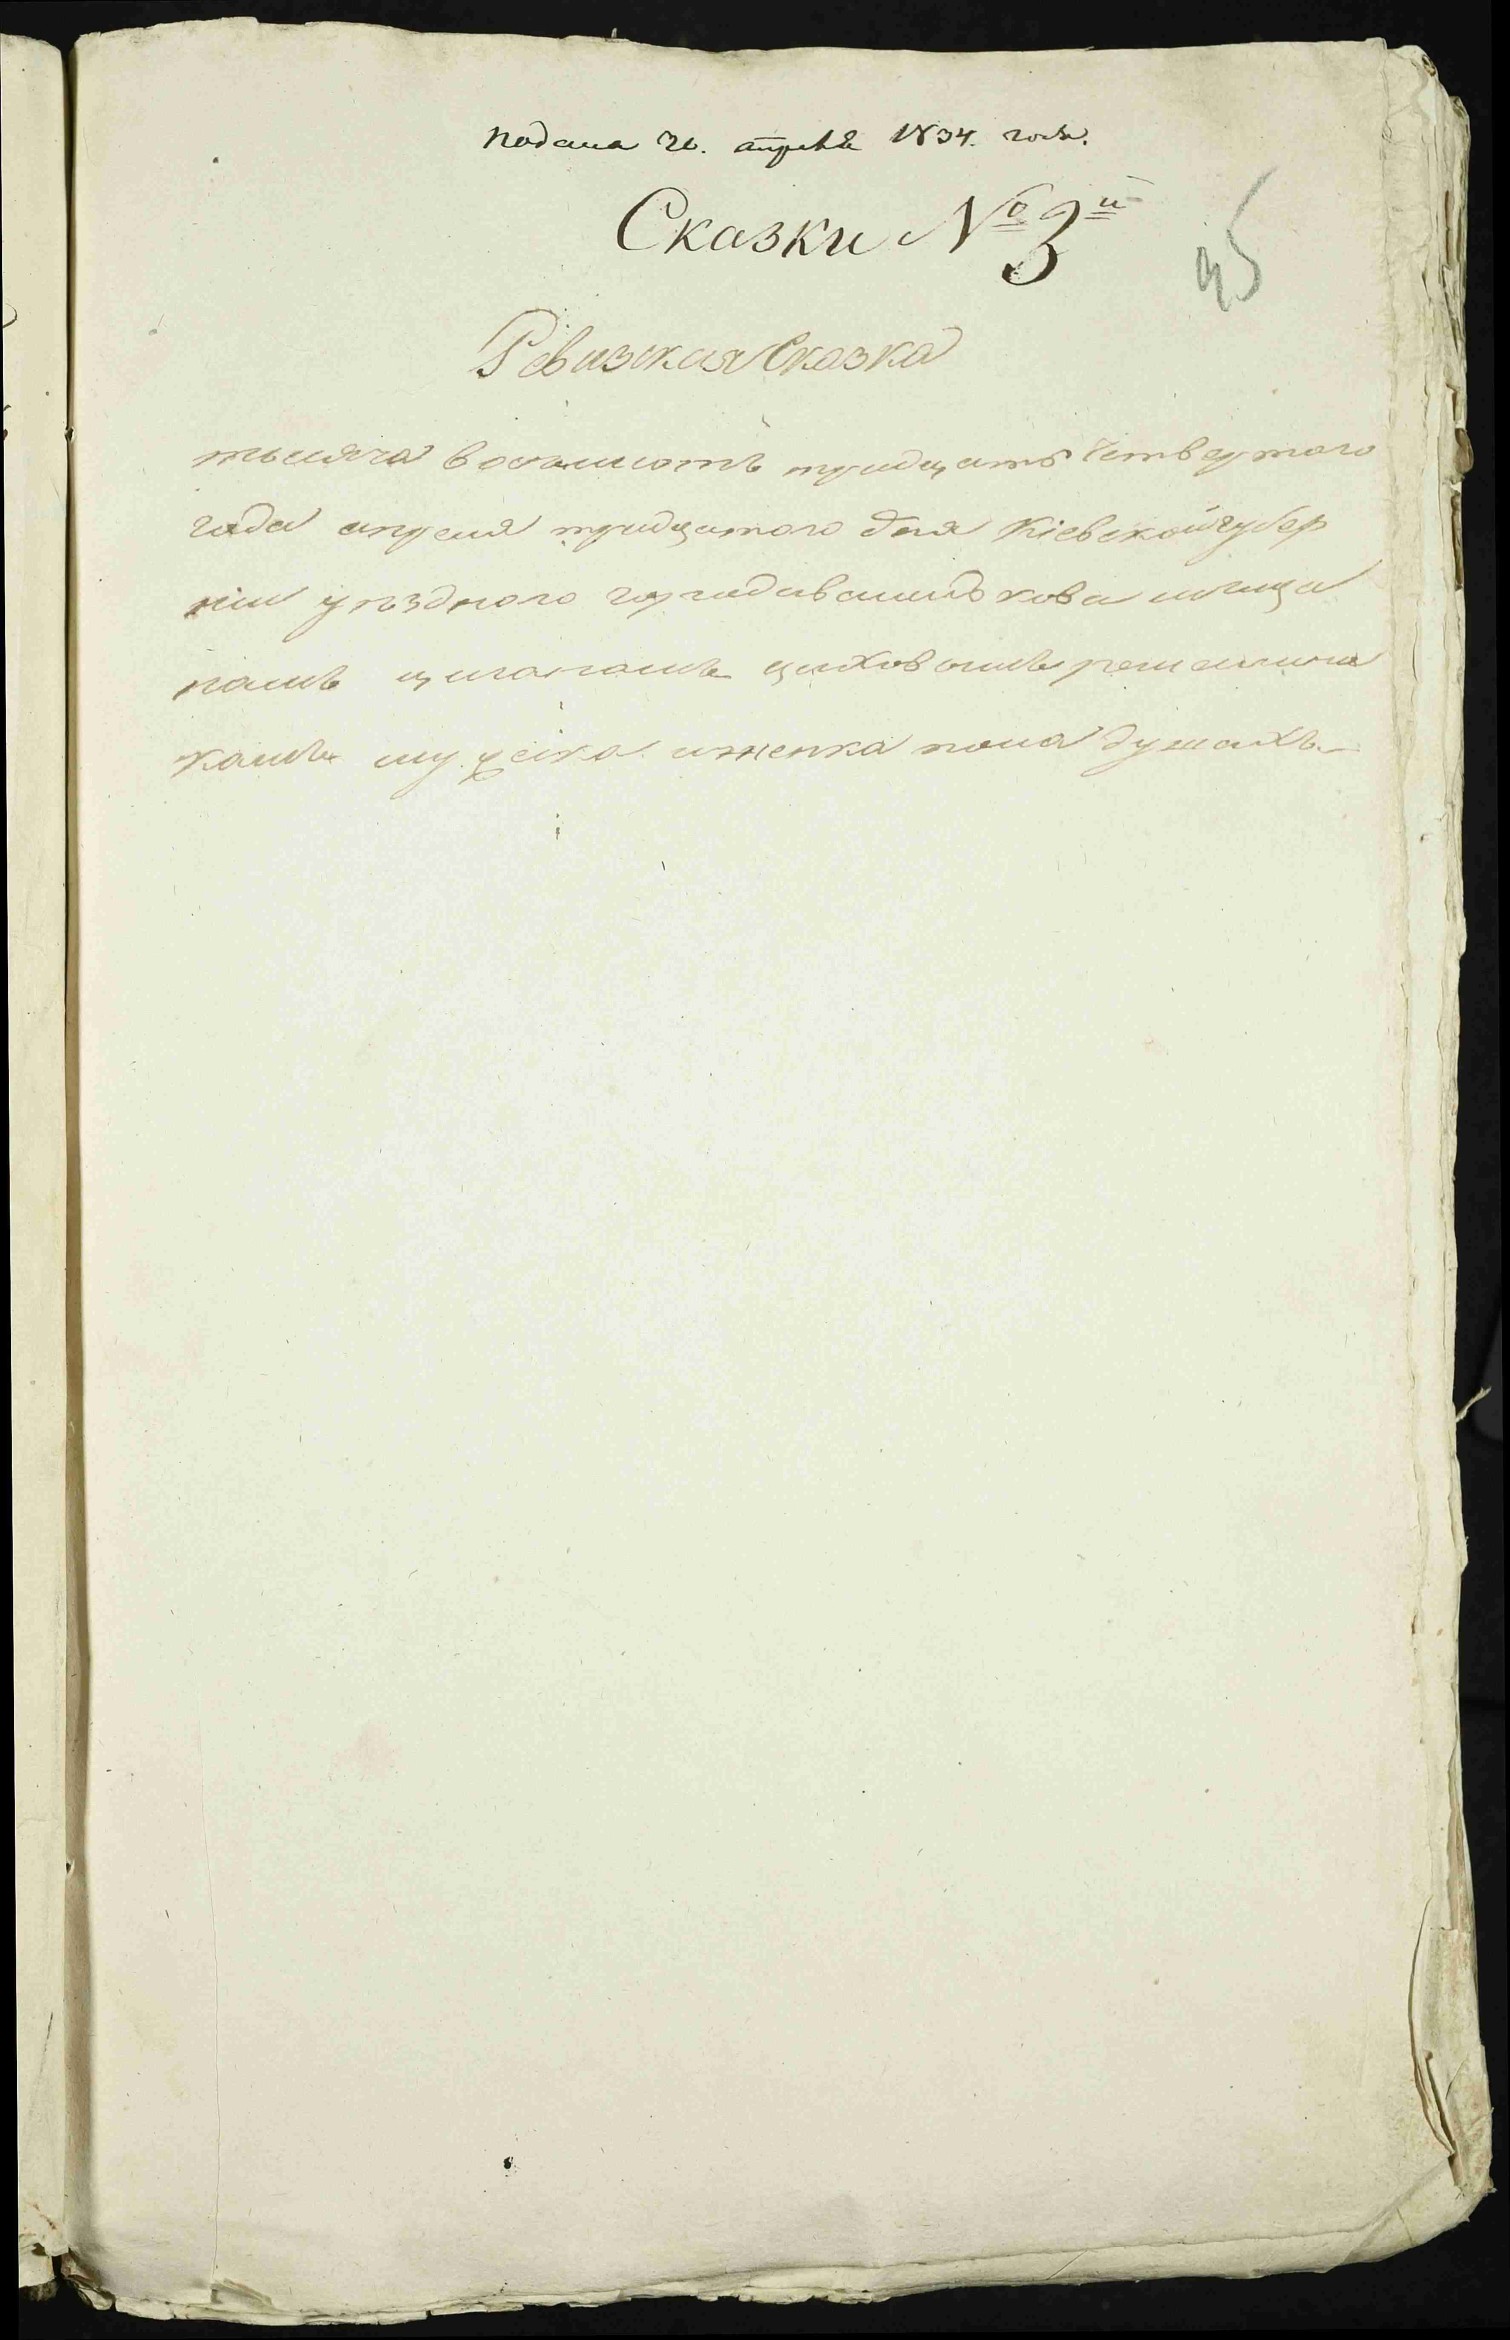 подана 30. апреля 1834. года.
Сказки № 3й
45
Ревизская Сказка
тысяча восемсотъ тридцать Четвертого
года апреля тридцатого дня Кіевской губер
ніи уѣздного города васильkова мѣща
намъ цыганамъ цеховымъ ремеслени
камъ мужеска иженка пола душахъ